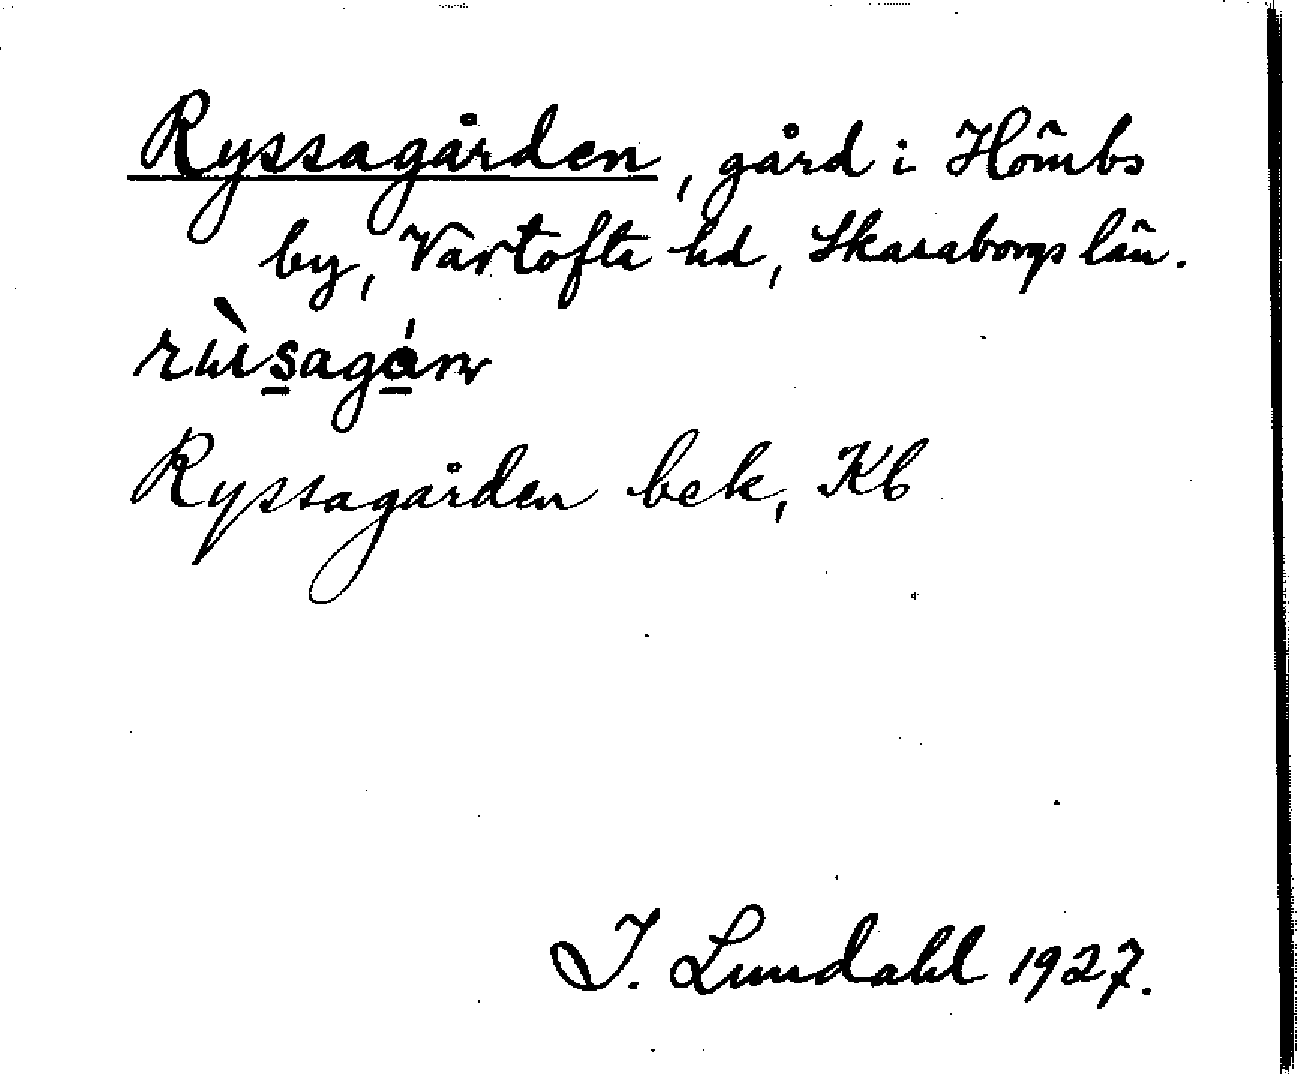 Ryssagården, gård i Hömbs
by, Vartofta hd, Skaraborgs län.
Ryssagården bek, Kb
I. Lundahl 1927.